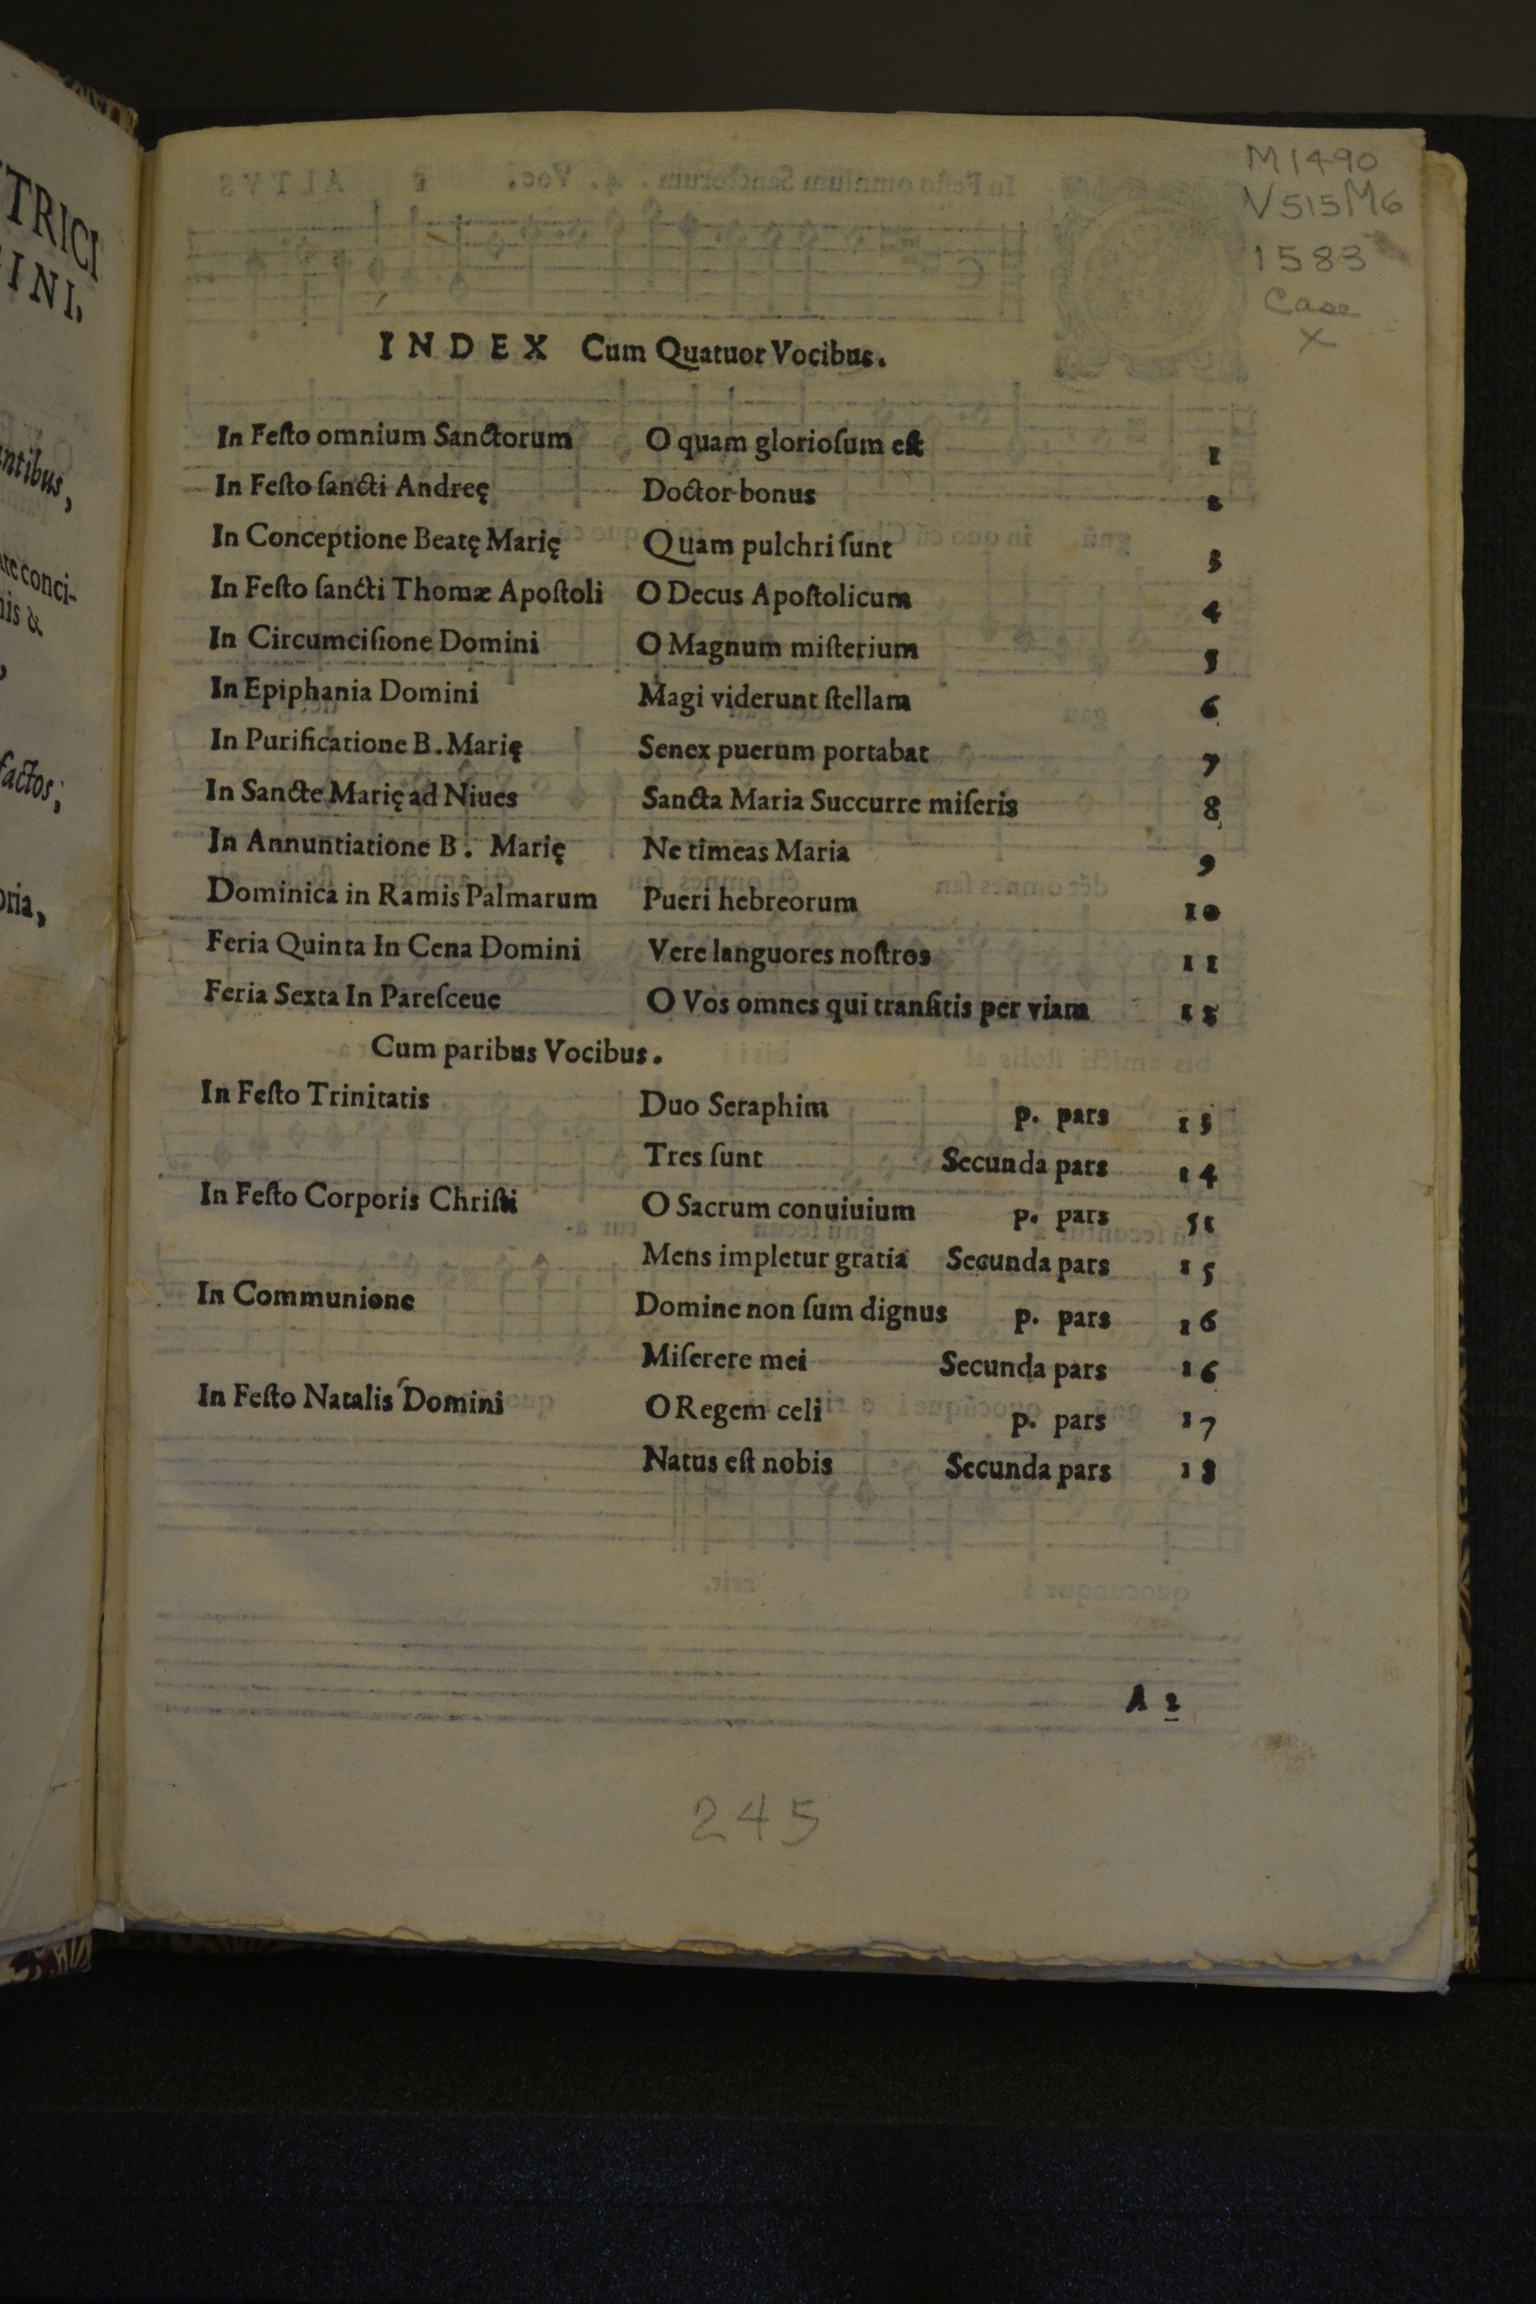 M1490
V515M6
1583
Case
X
INDEX Cum Quatuor Vocibus.
In Feſto omnium Sanctorum O quam glorioſum eſt 1
In Feſto ſancti Andreę Doctor bonus 2
In Conceptione Beatę Marię Quam pulchri ſunt 3
In Feſto ſancti Thomæ Apoſtoli O Decus Apoſtolicum 4
In Circumciſione Domini O Magnum miſterium 5
In Epiphania Domini Magi viderunt ſtellam 6
In Purificatione B. Marię Senex puerum portabat 7
In Sancte Marię ad Niues Sancta Maria Succurre miſeris 8
In Annuntiatione B. Marię Ne timeas Maria 9
Dominica in Ramis Palmarum Pueri hebreorum 10
Feria Quinta In Cena Domini Vere languores noſtros 11
Feria Sexta In Pareſceue O Vos omnes qui tranſitis per viam 12
Cum paribus Vocibus.
In Feſto Trinitatis Duo Seraphim p. pars 13
Tres ſunt Secunda pars 14
In Feſto Corporis Chriſti O Sacrum conuiuium p. pars 51
Mens impletur gratia Secunda pars 15
In Communione Domine non ſum dignus p. pars 16
Miſerere mei Secunda pars 16
In Feſto Natalis Domini O Regem celi p. pars 17
Natus eſt nobis Secunda pars 18
A 2
245